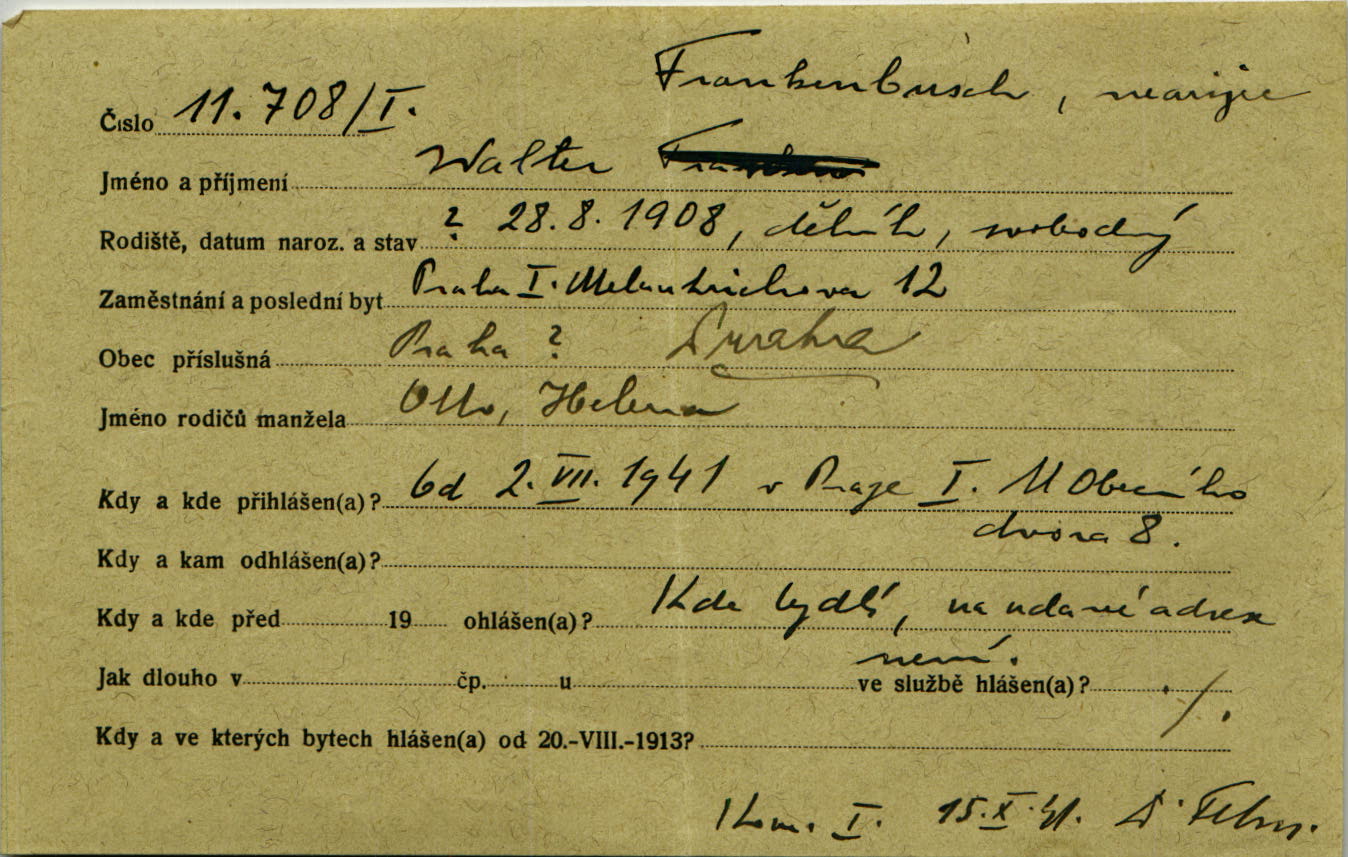 Frankenbusch, nearijec
Číslo 11.708/I.
Jméno a příjmení Walter
Rodiště, datum naroz. a stav ? 28.8.1908, dělník, svobodný
Zaměstnání a poslední byt Praha I. Melantrichova 12
Obec příslušná Praha ?
Jméno rodičů manžela Otto, Helena
Kdy a kde přihlášen(a)? Od 2. VII. 1941 v Praze I. U Obecního
dvora 8.
Kdy a kam odhlášen(a)?
Kdy a kde před 19 ohlášen(a)? Kde bydlí, na udané adrese
není.
Jak dlouho v čp. u ve službě hlášen(a)? ./.
Kdy a ve kterých bytech hlášen(a) od 20.-VIII.-1913?
Kom. I. 15.X.41.